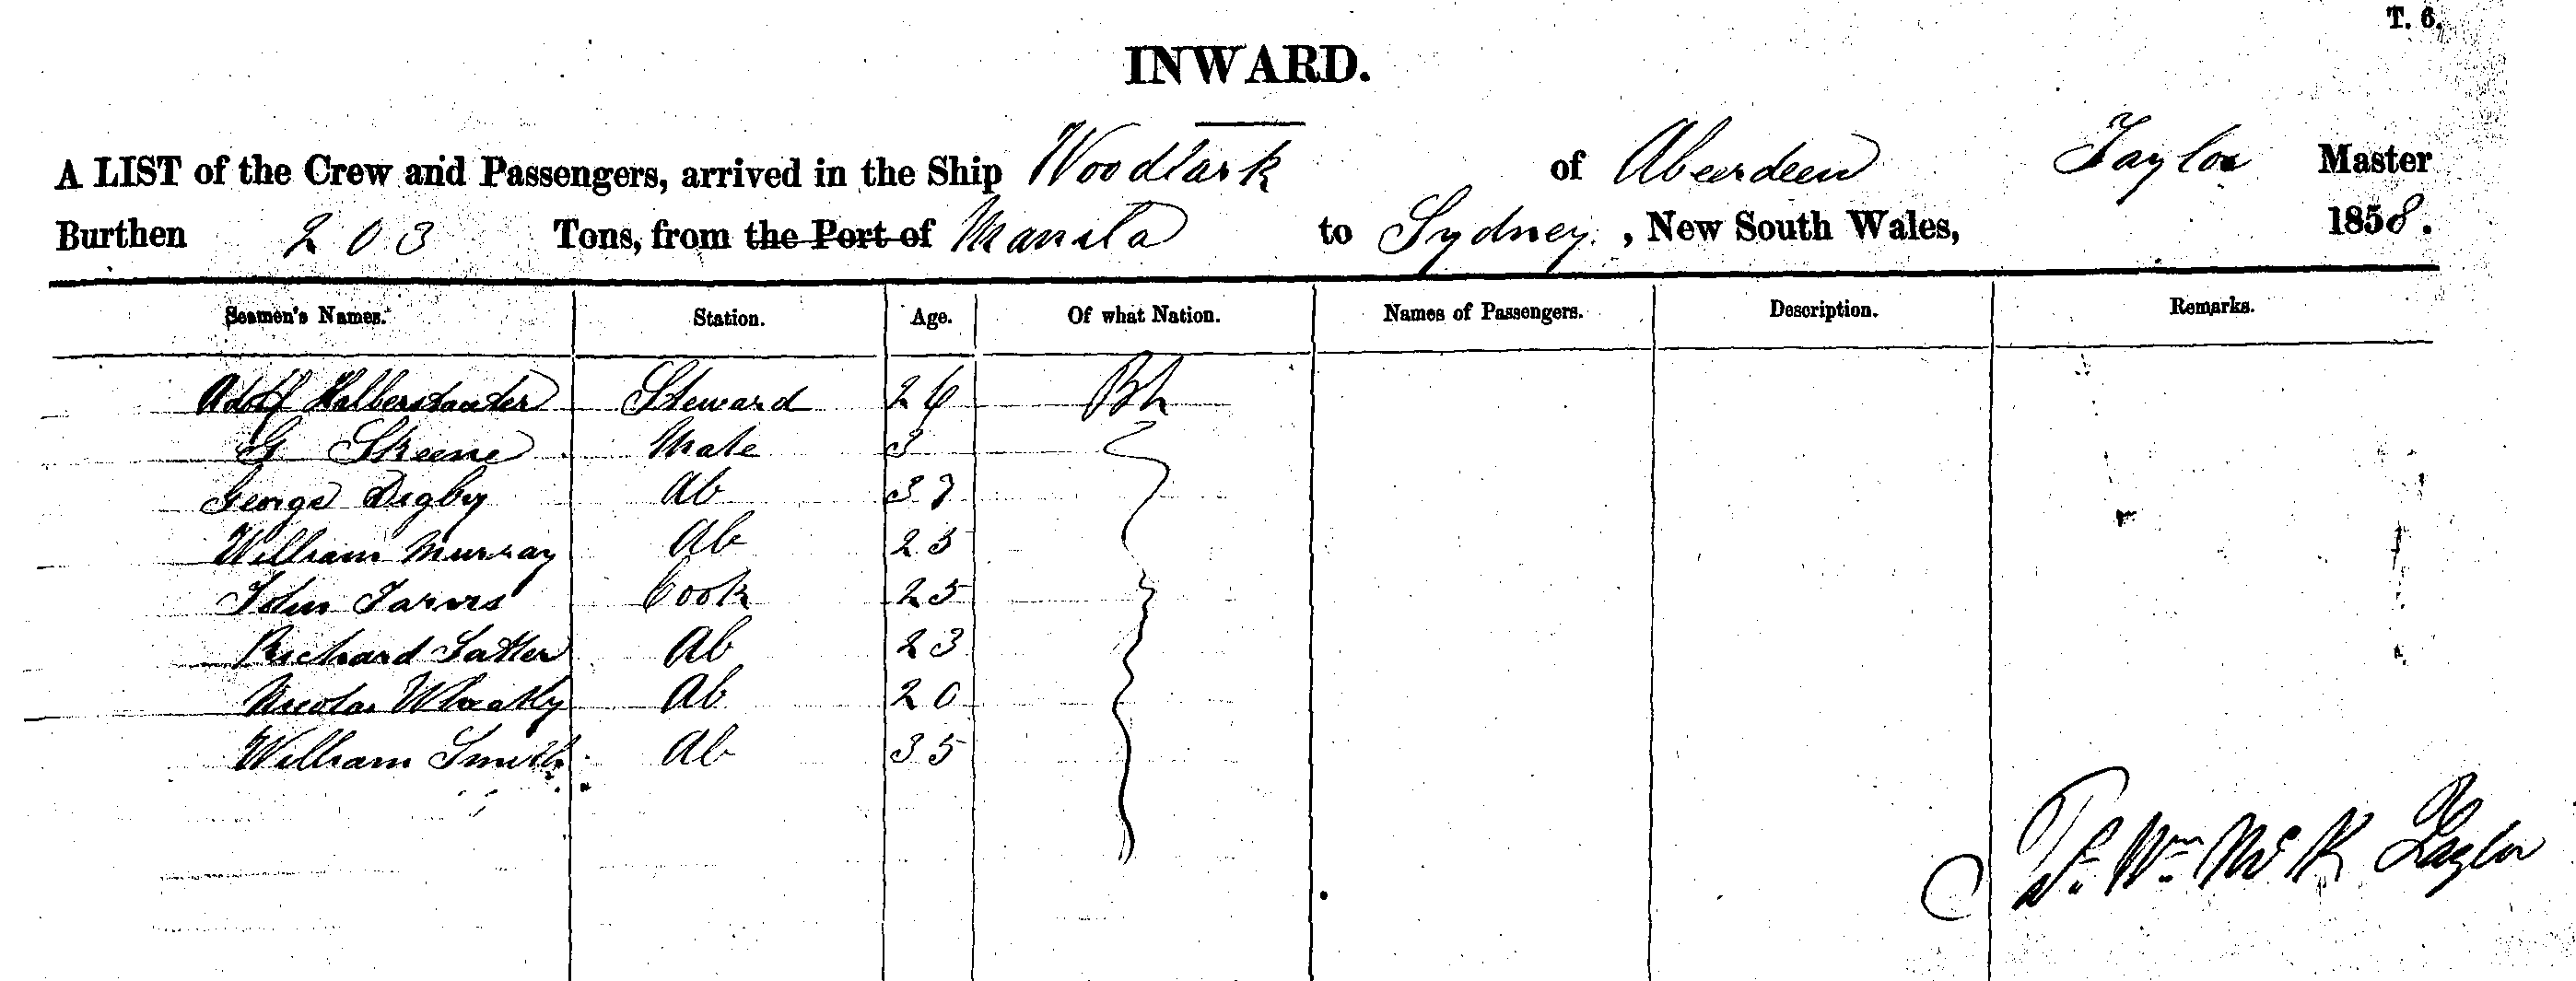 T. 6.
INWARD.
A LIST of the Crew and Passengers, arrived in the Ship Woodlark of Aberdeen Taylor Master
Burthen 203 Tons, from the Port of Manila to Sydney, New South Wales, 1858.
Seamen's Names. Station. Age. Of what Nation. Names of Passengers. Description. Remarks.
Adolf Halberstauter Steward 26
G Skeene Mate 3
George Digby Ab 37
William Murray Ab 25
John Jarvis Cook 25
Richard Ab 23
Nicolas Wheatly Ab 20
William Smith Ab 35
Wm McK Taylor